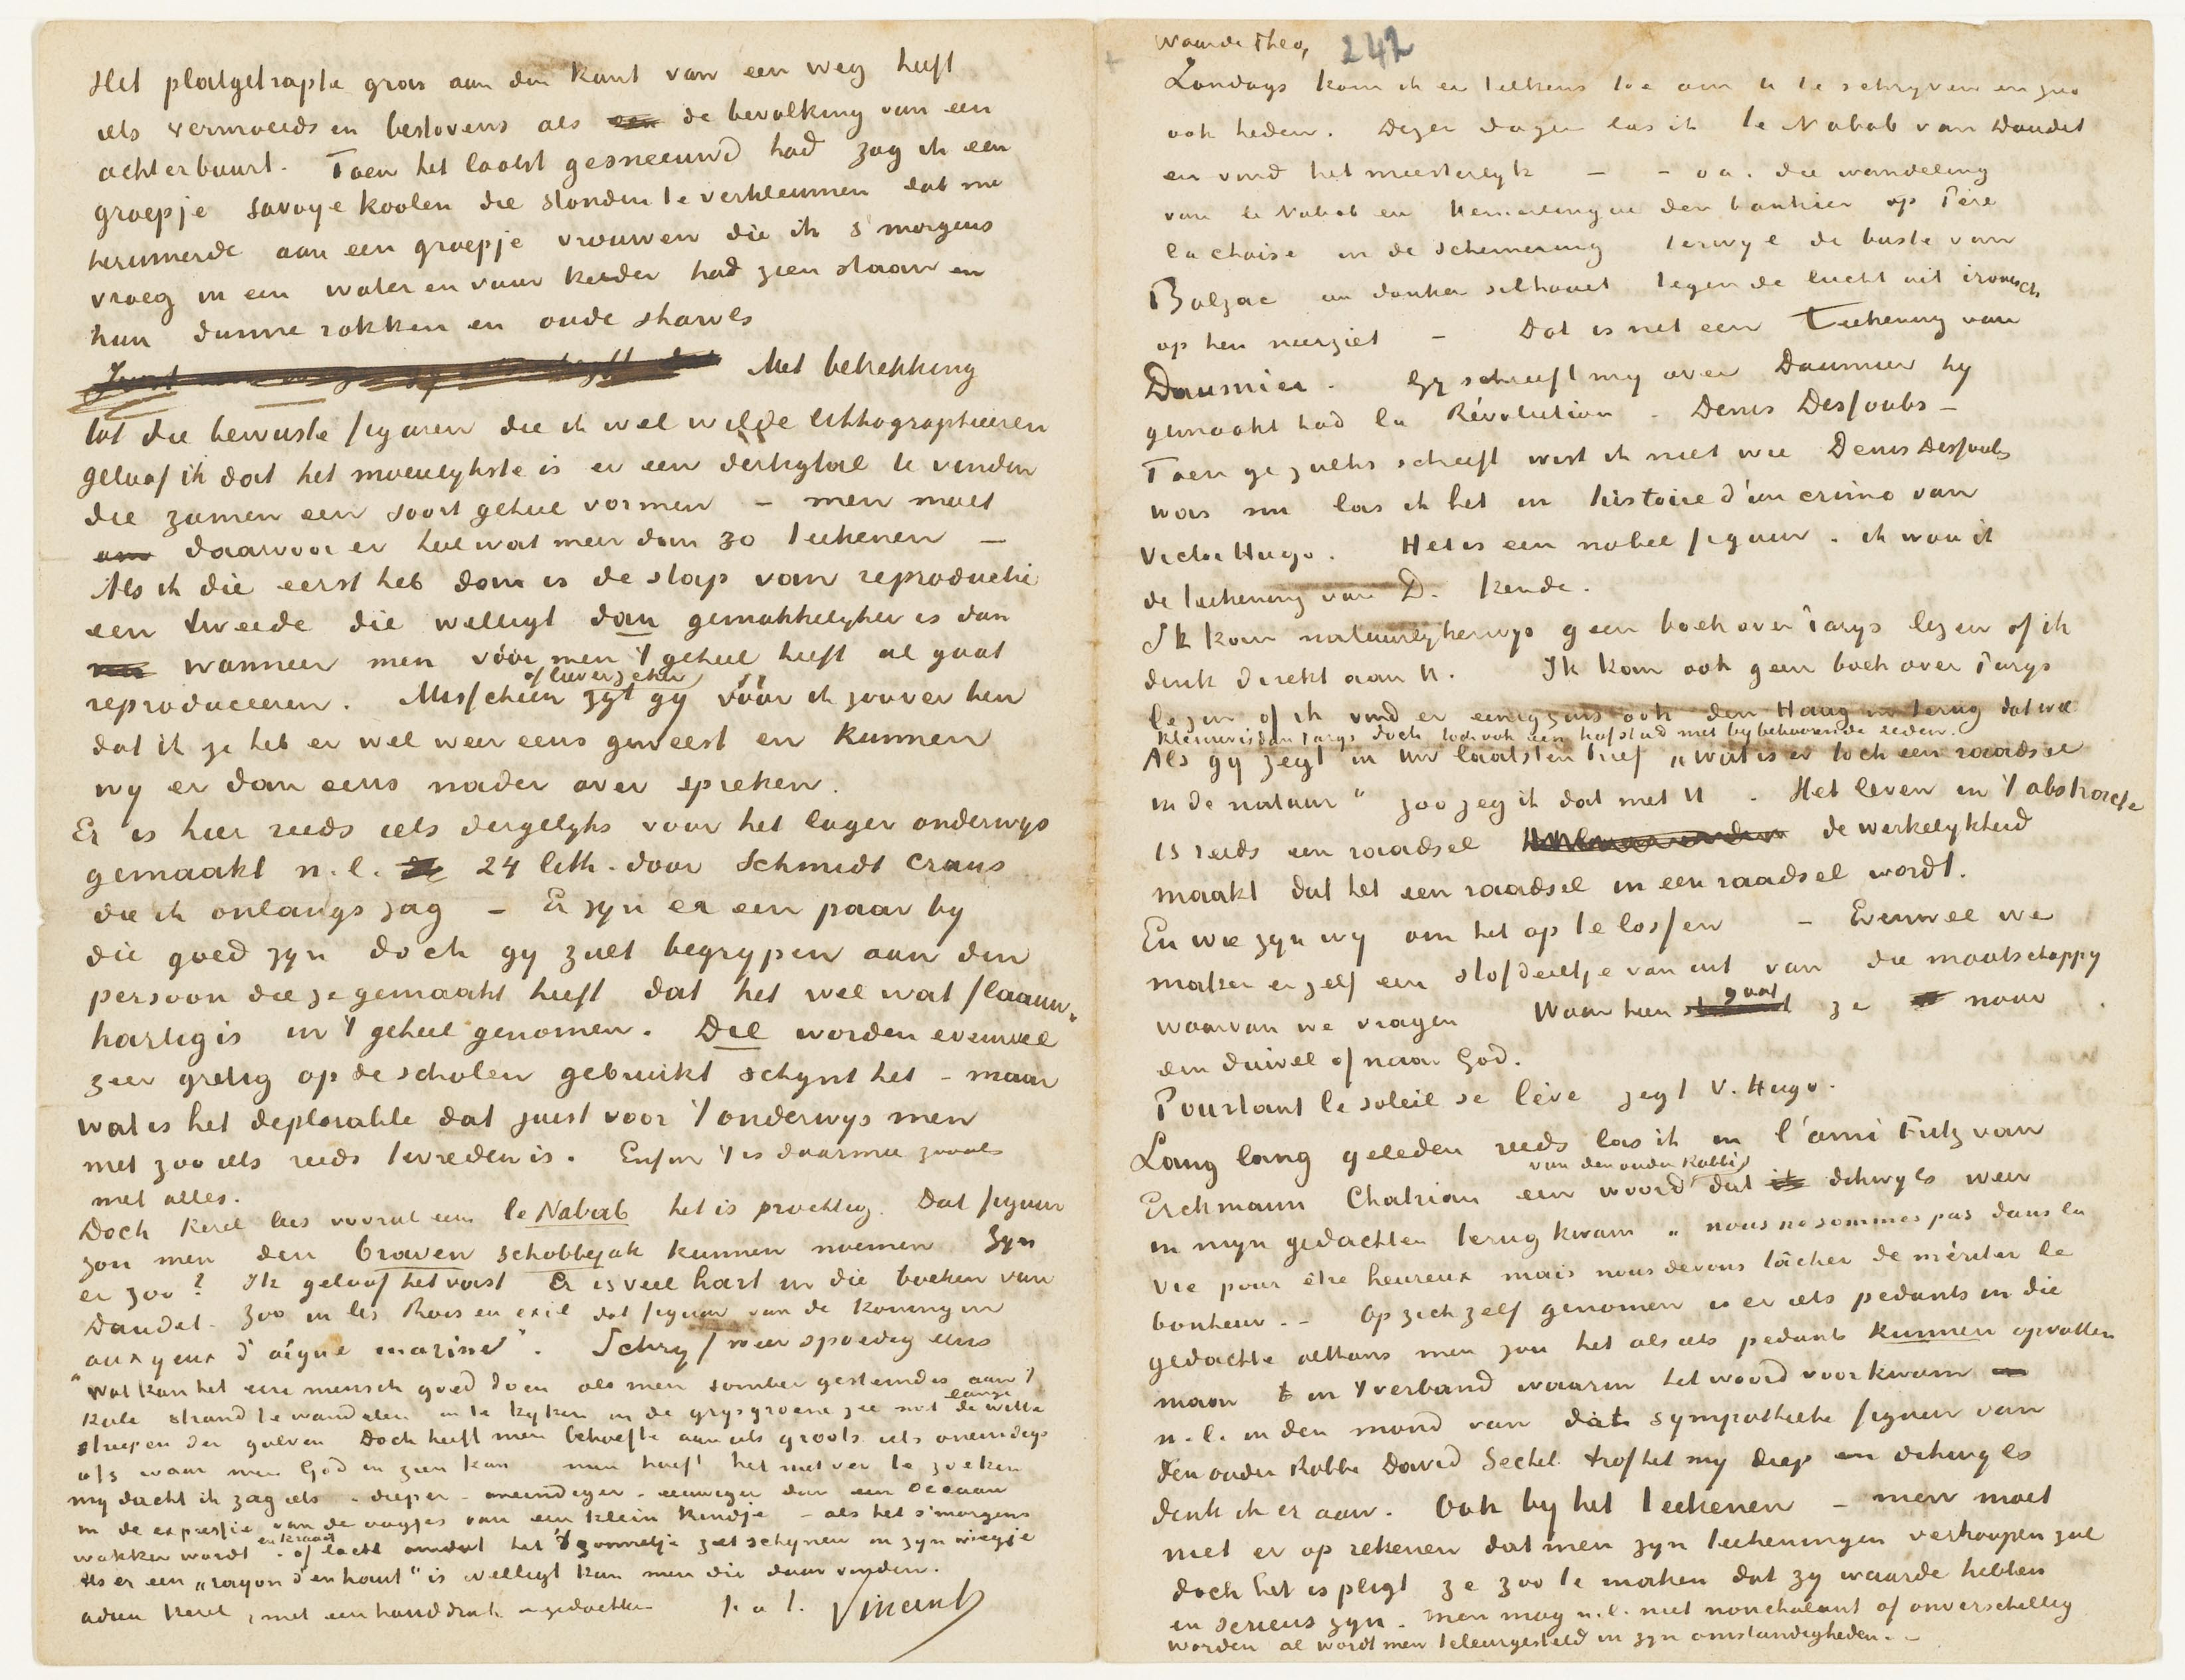 Waarde Theo,
242
Zondags kom ik er telkens toe om U te schryven en zoo
ook heden. Dezer dagen las ik le Nabab van Daudet
en vind het meesterlyk – – o.a. die wandeling
van le Nabab en Hemerlingue den bankier op Père
lachaise in de schemering terwyl de buste van
Balzac een donker silhouet tegen de lucht uit ironisch
op hen neerziet – Dat is net een Teekening van
Daumier. Gy schreeft my over Daumier hy
gemaakt had la Révolution. Denis Desfoubs –
Toen ge zulks schreeft wist ik niet wie Denis Desfoubs
was nu las ik het in histoire d'un crime van
Victor Hugo. Het is een nobel figuur. ik wou ik
de teekening van D. kende.
Ik kan natuurlykerwys geen boek over Parys lezen of ik
denk direkt aan U. Ik kan ook geen boek over Parys
lezen of ik vind er eenigzins ook den Haag in terug dat wel
kleiner is dan Parys doch toch ook een hofstad met bybehoorende zeden.
Als gy zegt in uw laatsten brief „wat is er toch een raadsel
in de natuur" zoo zeg ik dat met U. Het leven in 't abstracte
is reeds een raadsel de werkelykheid
maakt dat het een raadsel in een raadsel wordt.
En wie zyn wy om het op te lossen – Evenwel we
maken er zelf een stofdeeltje van uit van die maatschappy
waarvan we vragen Waar heen gaat ze naar
den duivel of naar God.
Pourtant le soleil se lève zegt V. Hugo.
Lang lang geleden reeds las ik in l'ami Fritz van
Erckmann Chatrian een woord van den ouden Rabbi dat dikwyls weer
in myn gedachten terug kwam „nous ne sommes pas dans la
vie pour être heureux mais nous devons tâcher de mériter le
bonheur. – Op zich zelf genomen is er iets pedants in die
gedachte althans men zou het als iets pedants kunnen opvatten
maar in 't verband waarin het woord voorkwam
n.l. in den mond van dat sympathieke figuur van
den ouden Rabbi David Sechel trof het my diep en dikwyls
denk ik er aan. Ook by het teekenen – men moet
niet er op rekenen dat men zyn teekeningen verkoopen zal
doch het is pligt ze zoo te maken dat zy waarde hebben
en serieus zyn. men mag n.l. niet nonchalant of onverschillig
worden al wordt men teleurgesteld in zyn omstandigheden. –
Het platgetrapte gras aan den kant van een weg heeft
iets vermoeids en bestovens als de bevolking van een
achterbuurt. Toen het laatst gesneeuwd had zag ik een
groepje Savoye koolen die stonden te verkleumen dat me
herinnerde aan een groepje vrouwen die ik s'morgens
vroeg in een water en vuur kelder had zien staan in
hun dunne rokken en oude sharves
Met betrekking
tot die bewuste figuren die ik wel wilde lithographieeren
geloof ik dat het moeielykste is er een dertigtal te vinden
die zamen een soort geheel vormen – men moet
daarvoor er heel wat meer dan 30 teekenen –
Als ik die eerst heb dan is de stap van reproductie
een tweede die welligt dan gemakkelyker is dan
wanneer men vóór men 't geheel heeft al gaat
reproduceeren. Misschien of liever zeker zyt gy vóór ik zoover ben
dat ik ze heb er wel weer eens geweest en kunnen
wy er dan eens nader over spreken.
Er is hier reeds iets dergelyks voor het lager onderwys
gemaakt n.l. 24 lith. door Schmidt Crans
die ik onlangs zag – Er zyn er een paar by
die goed zyn doch gy zult begrypen aan den
persoon die ze gemaakt heeft dat het wel wat flaauw„
hartig is in 't geheel genomen. Die worden evenwel
zeer gretig op de scholen gebruikt schynt het – maar
wat is het deplorable dat juist voor 't onderwys men
met zoo iets reeds tevreden is. Enfin 't is daarmee zooals
met alles.
Doch kerel lees vooral eens le Nabab het is prachtig. Dat figuur
zou men den braven schobbejak kunnen noemen Zyn
er zoo? Ik geloof het vast Er is veel hart in die boeken van
Daudet. Zoo in les Rois en exil dat figuur van de koningin
„aux yeux d'aigue marine". Schryf weer spoedig eens
Wat kan het een mensch goed doen als men somber gestemd is aan 't
kale strand te wandelen en te kyken in de grysgroene zee met de lange witte
streepen der golven Doch heeft men behoefte aan iets groots iets oneindigs
iets waar men God in zien kan men hoeft het niet ver te zoeken
my dacht ik zag iets – dieper – oneindiger – eeuwiger dan een oceaan
in de expressie van de oogjes van een klein kindje – als het s'morgens
wakker wordt en kraait – of lacht omdat het 't zonnetje ziet schynen in zyn wiegje
Als er een „rayon d'en haut" is welligt kan men die daar vinden.
adieu kerel, met een handdruk in gedachten t. à t. Vincent